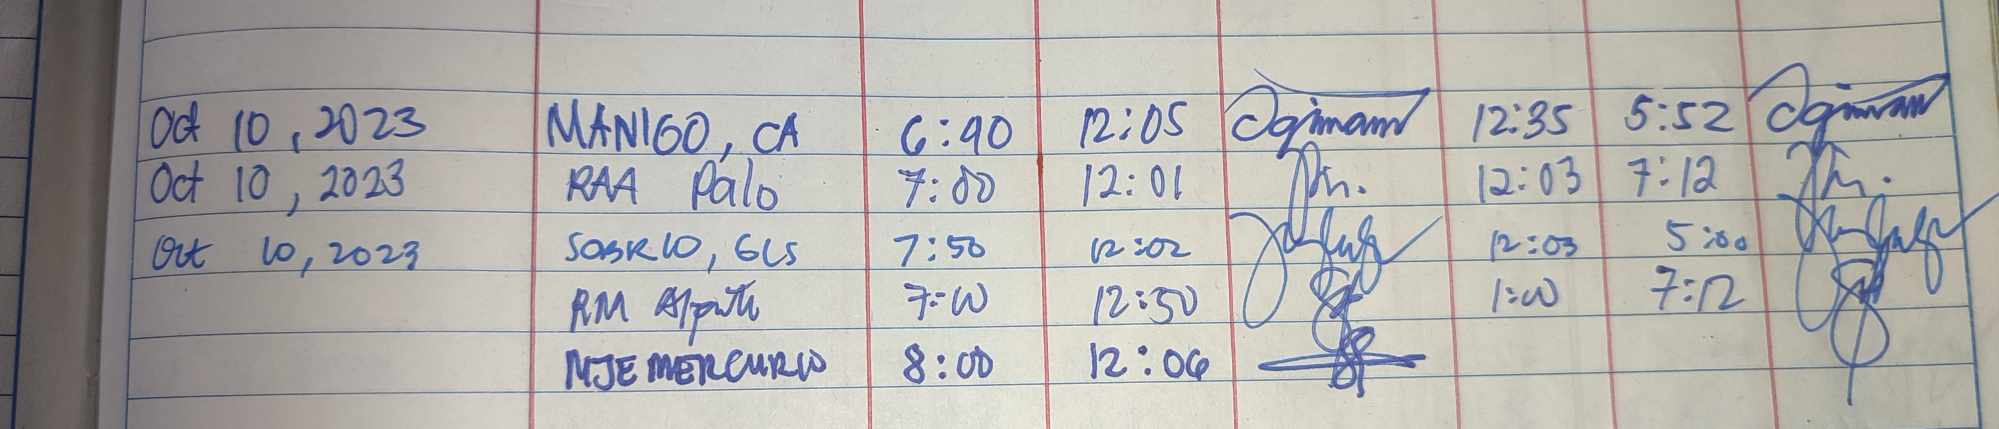 Oct 10, 2023 MANIGO, CA 6:40 12:05 12:35 5:52
Oct 10, 2023 RAA Palo 7:00 12:01 12:03 7:12
Oct 10, 2023 SOBRIO, GLS 7:50 12:02 12:03 5:00
RM 7:00 12:50 1:00 7:12
NJE MERCURIO 8:00 12:06